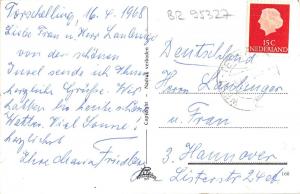 Terschelling, 16.4.1968
Liebe Frau und Herr Landinger
von der schönen
Insel sende ich Ihnen
herzliche Grüße. Wir
hatten bis heute schönes
Wetter. Viel Sonne!
Herzlichst
Ihre Maria Friedlen
Copyright - Nadruk verboden
BR 95327
15 C
NEDERLAND
Deutschland
Herrn Landinger
u. Frau
3. Hannover
Listerstr. 24